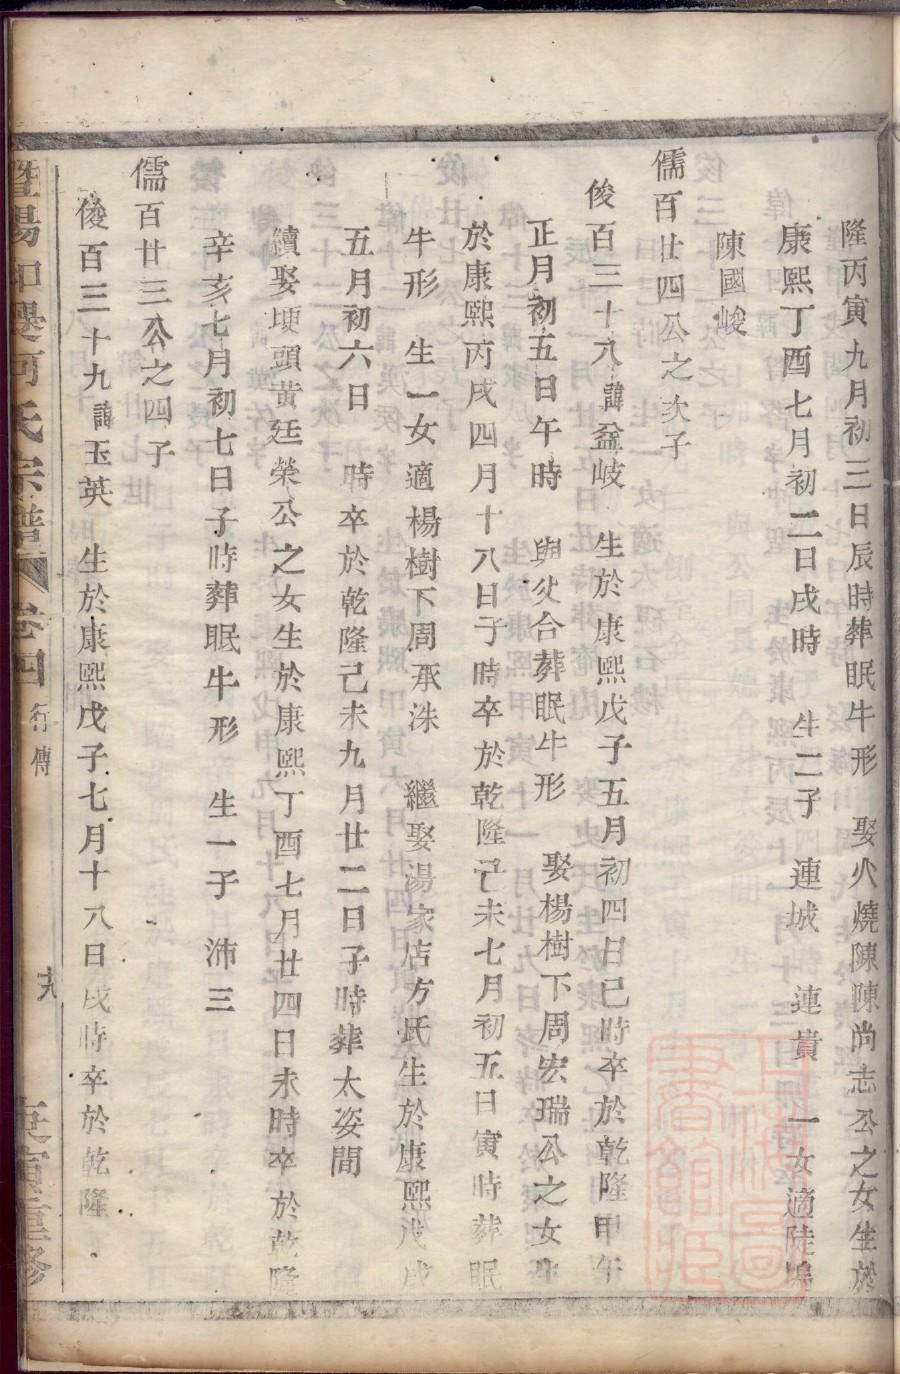 隆丙寅九月初三日辰時葬眠牛形　娶火燒陳陳尚志公之女生於
康熙丁酉七月初二日戌時　生二子　連城　連貴　一女適陡塢
陳國峻
儒百廿四公之次子
俊百三十八諱益岐　生於康熙戊子五月初四日巳時卒於乾隆甲午
正月初五日午時　與父合葬眠牛形　娶楊樹下周宏瑞公之女生
於康熙丙戌四月十八日子時卒於乾隆己未七月初五日寅時葬眠
牛形　生一女適楊樹下周承洙　繼娶湯家店方氏生於康熙戊戌
五月初六日　時卒於乾隆己未九月廿二日子時葬太姿間
續娶埂頭黃廷榮公之女生於康熙丁酉七月廿四日未時卒於乾隆
辛亥七月初七日子時葬眠牛形　生一子　沛三
儒百廿三公之四子
俊百三十九諱玉英　生於康熙戊子七月十八日戌時卒於乾隆
暨陽 何氏宗譜 卷四 行傳 重修